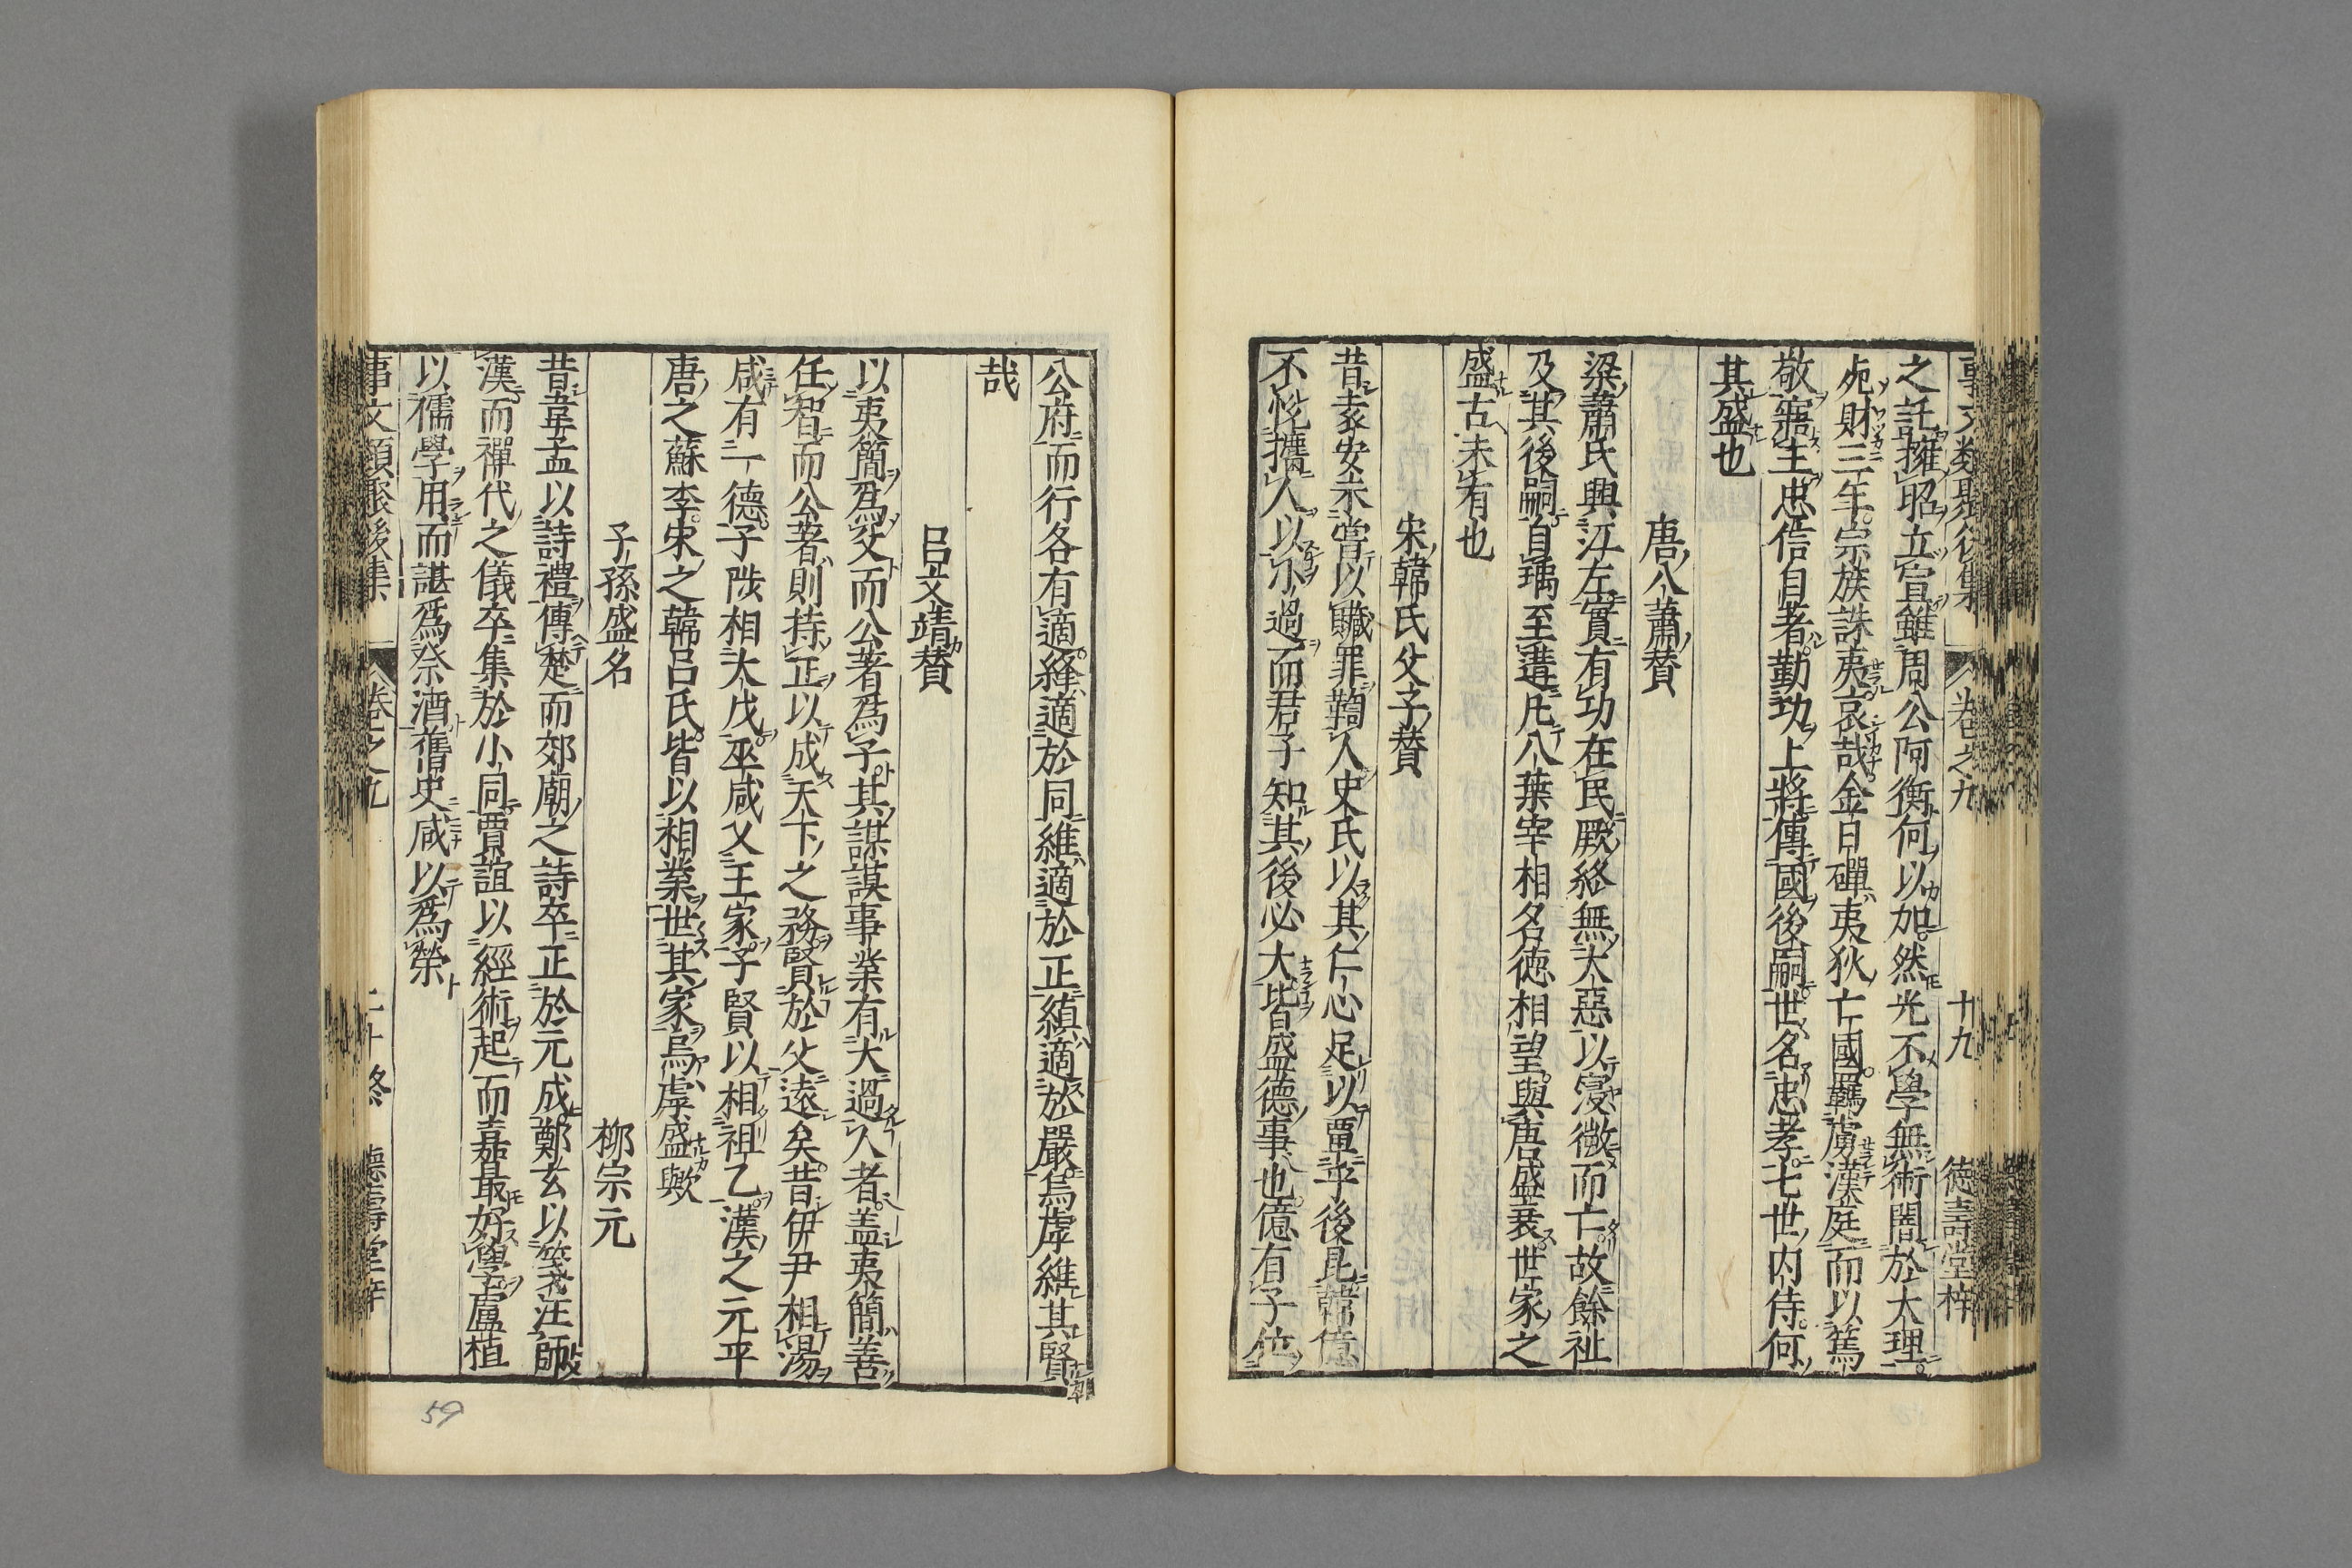 事文類聚後集 卷之九 十九 德壽堂梓
之託擁昭立宣雖周公阿衡何以加然光不學無術闇於大理
死財三年宗族誅夷哀哉金日磾夷狄亡國羈虜漢庭而以篤
敬寤主忠信自著勤功上將傳國後嗣世名忠孝七世内侍何
其盛也
唐八蕭賛
梁蕭氏興江左實有功在民厥終無大惡以寖微而亡故餘祉
及其後嗣自瑀至遘凡八葉宰相名德相望與唐盛衰世家之
盛古未有也
宋韓氏父子賛
昔袁安未嘗以贓罪鞫人史氏以其仁心足以覃乎後昆韓億
不悦攟人以小過而君子知其後必大皆盛德事也億有子位
公府而行各有適絳適於同維適於正縝適於嚴烏虖維其賢
哉
呂文靖賛
以夷簡爲父而公著爲子其謀謨事業有大過人者盖夷簡善
任智而公著則持正以成天下之務賢於父遠矣昔伊尹相湯
咸有一德子陟相太戊巫咸乂王家子賢以相祖乙漢之元平
唐之蘇李宋之韓呂氏皆以相業世其家烏虖盛歟
子孫盛名 柳宗元
昔韋孟以詩禮傳楚而郊廟之詩卒正於元成鄭玄以箋注師
漢而禪代之儀卒集於小同賈誼以經術起而嘉最好學盧植
以儒學用而諶爲祭酒舊史咸以爲榮
事文類聚後集 卷之九 二十終 德壽堂梓
59